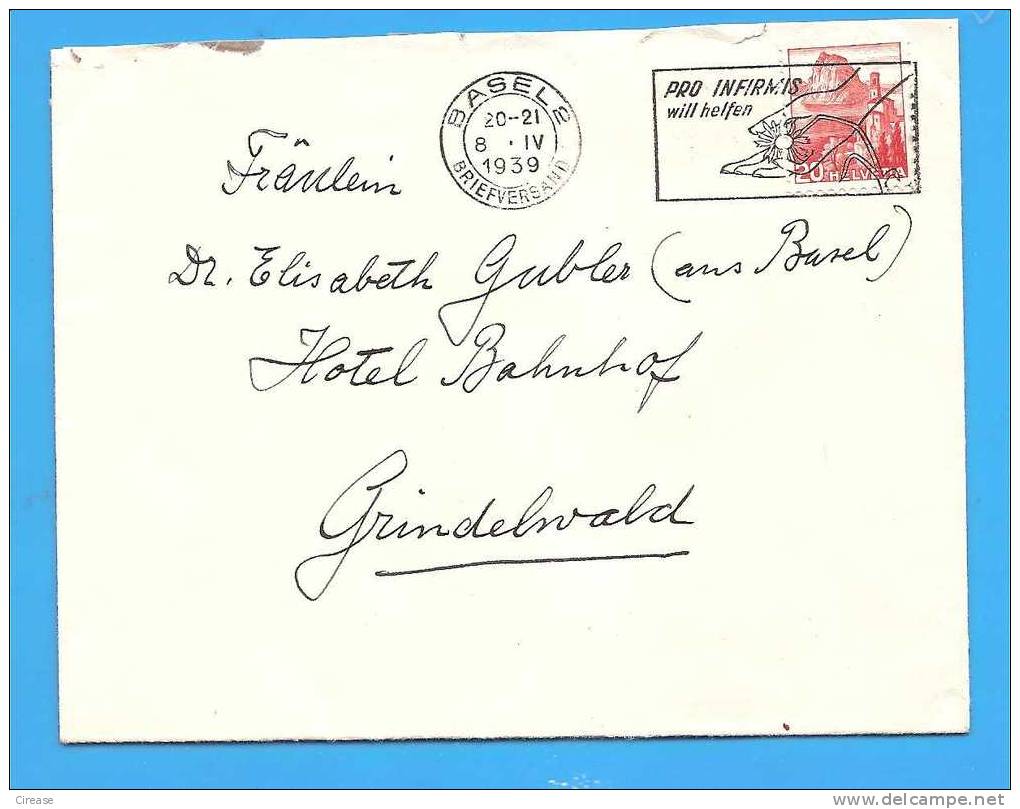 BASEL 2
20-21
8 · IV
1939
BRIEFVERSAND
PRO INFIRMIS
will helfen
20 HELVETIA
Fräulein
Dr. Elisabeth Gubler (aus Basel)
Hotel Bahnhof
Grindelwald
Cirease
www.delcampe.net